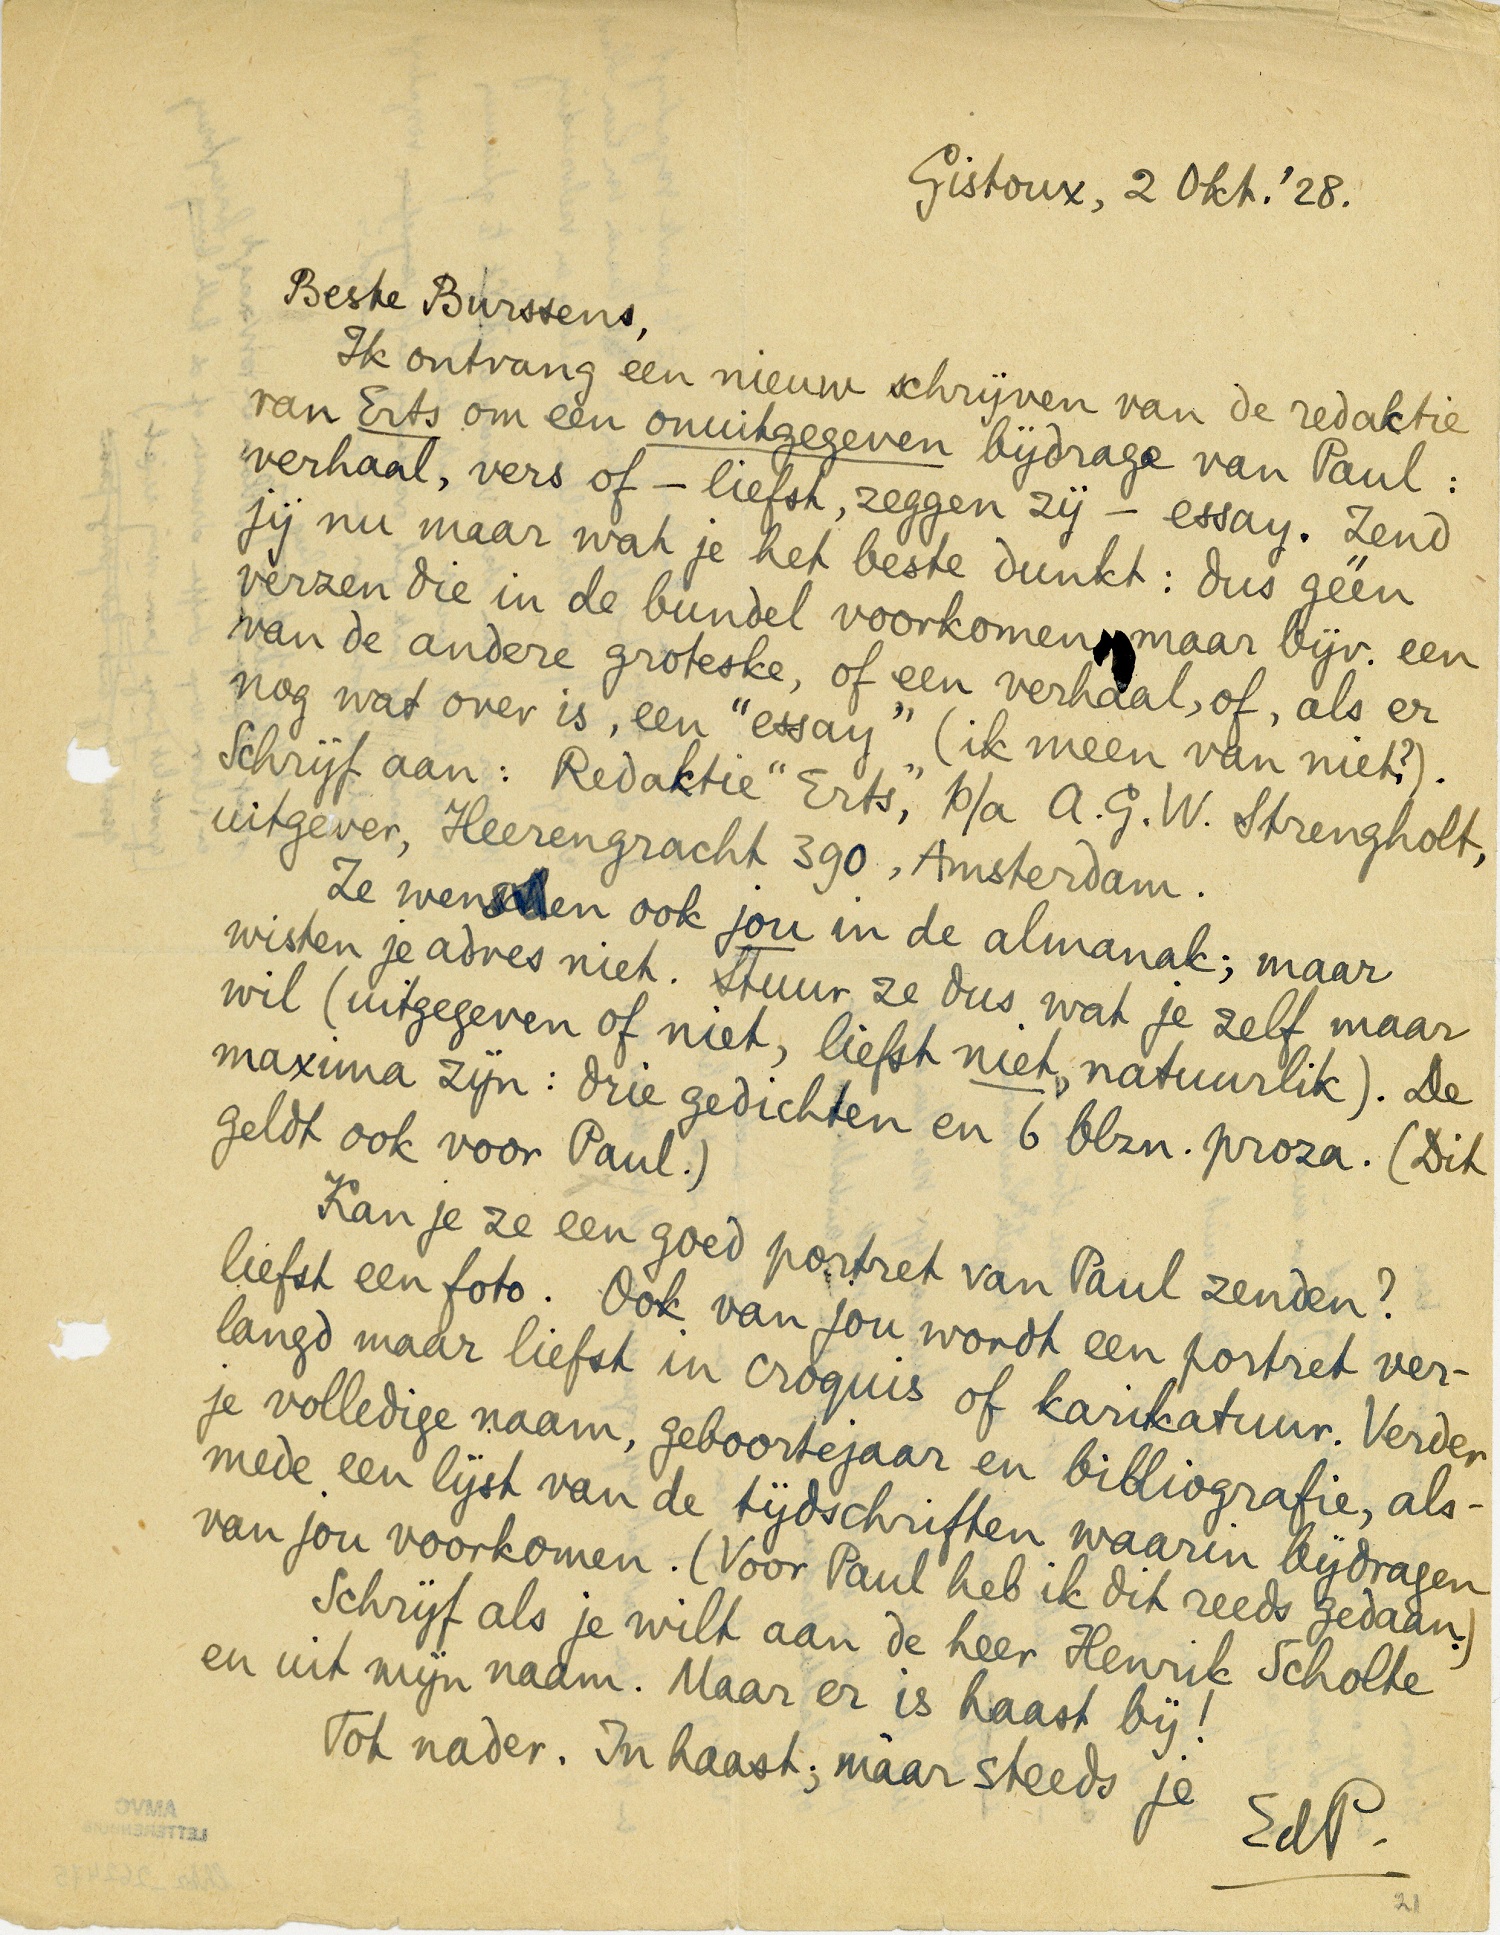 Gistoux, 2 Okt. '28.
Beste Burssens,
Ik ontvang een nieuw schrijven van de redaktie
van Erts om een onuitgegeven bijdrage van Paul :
verhaal, vers of – liefst, zeggen zij – essay. Zend
jij nu maar wat je het beste dunkt : dus géén
verzen die in de bundel voorkomen, maar bijv. een
van de andere groteske, of een verhaal, of, als er
nog wat over is, een "essay" (ik meen van niet?).
Schrijf aan : Redaktie "Erts," p/a A.G.W. Strengholt,
uitgever, Heerengracht 390, Amsterdam.
Ze wenschen ook jou in de almanak; maar
wisten je adres niet. Stuur ze dus wat je zelf maar
wil (uitgegeven of niet, liefst niet, natuurlik). De
maxima zijn : drie gedichten en 6 blzn. proza. (Dit
geldt ook voor Paul.)
Kan je ze een goed portret van Paul zenden?
liefst een foto. Ook van jou wordt een portret ver-
langd maar liefst in croquis of karikatuur. Verder
je volledige naam, geboortejaar en bibliografie, als-
mede een lijst van de tijdschriften waarin bijdragen
van jou voorkomen. (Voor Paul heb ik dit reeds gedaan.)
Schrijf als je wilt aan de heer Henrik Scholte
en uit mijn naam. Maar er is haast bij!
Tot nader. In haast; maar steeds je
EdP.
21
AMVC
LETTERENHUIS